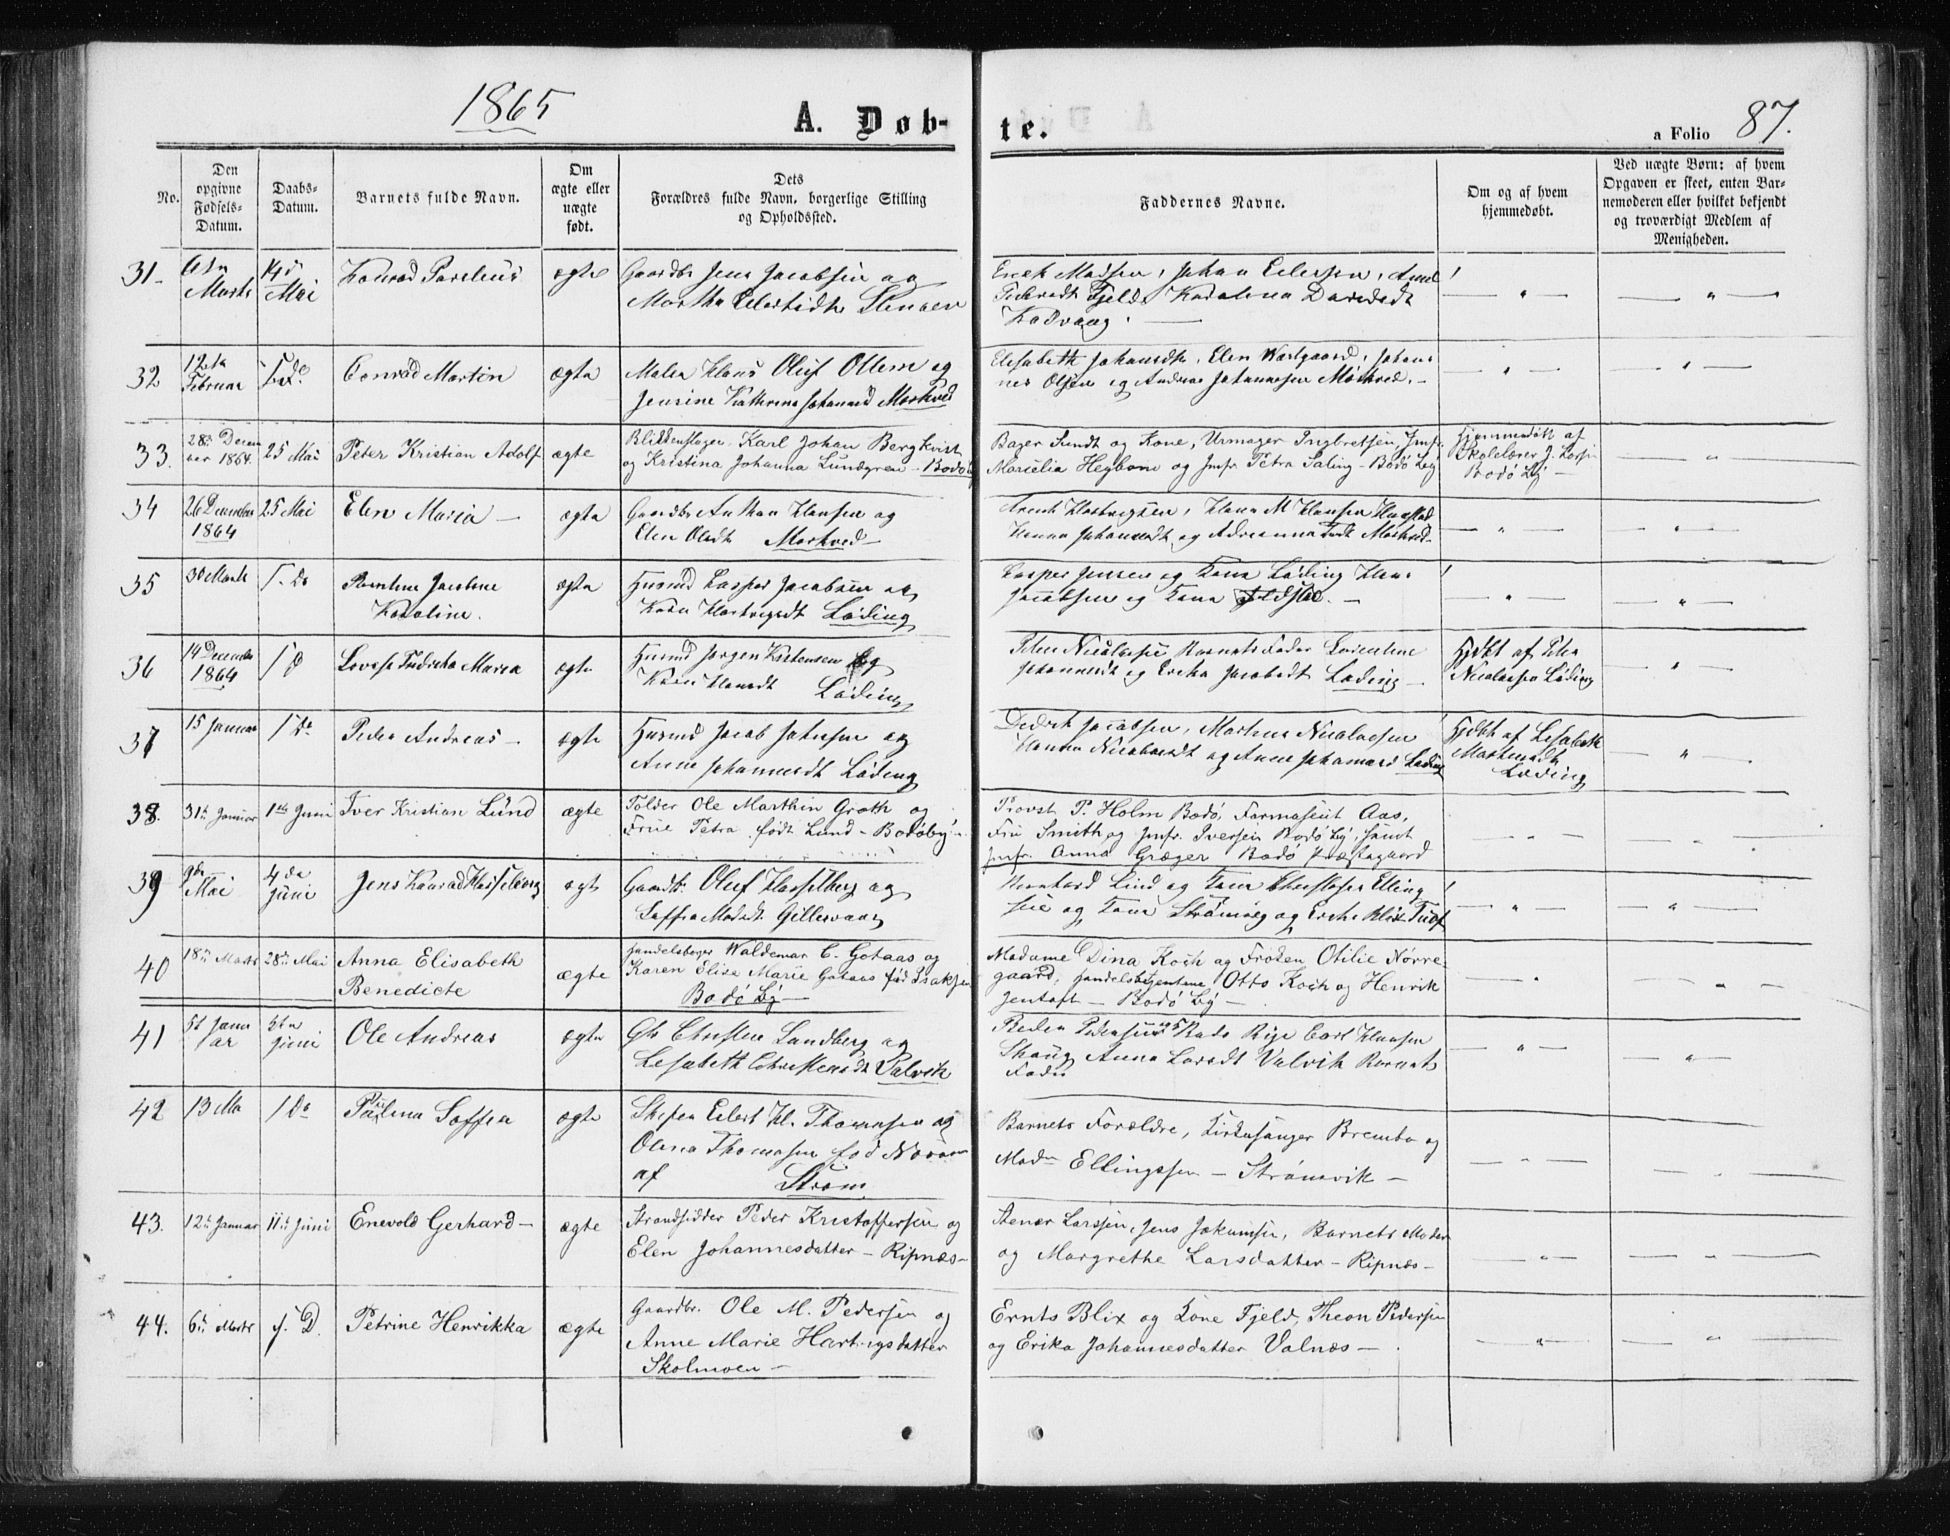 1865
A. Døb-
te.
a Folio 87.
No.
Den
opgivne
Fødsels-
Datum.
Daabs-
Datum.
Barnets fulde Navn.
Om
ægte eller
uægte
født.
Dets
Forældres fulde Navn, borgerlige Stilling
og Opholdssted.
Faddernes Navne.
Om og af hvem
hjemmedøbt.
Ved uægte Børn: af hvem
Opgaven er skeet, enten Bar-
nemoderen eller hvilket bekjendt
og troværdigt Medlem af
Menigheden.
31.
Marts
Mai
ægte
Gaardbr Jens Jacobsen og
Martha
Johan
Fjeld
32
12te
Februar
Conrad Martin
ægte
Oluf Ottem og
Jensine Kathrina Johannesd Mørkved
Elisabeth Johannsdtr, Elen, Johan-
nes Olsen og Andreas Johannesen Mørkved.
33.
28de Decem
ber 1864.
25 Mai
Peter Kristian Adolf
ægte
Blikkenslager Karl Johan Bergkvist
og Kristina Johanna Lundgren – Bodø
Bager Sundt og Kone, Urmager Ingbretsen, Jmfr
Marselia Hegbom og Jmfr Petra Saling – Bodø by
Hjemmedøbt af
Skolelærer J. Lorsen
Bodø by –
34
26 December
1864
25 Mai
Elen Maria –
ægte
Gaardbr Anthon Hansen og
Elen Olsdt Mørkved –
Arent Hartvigsen, Hans M Hansen
Hanna Johannesdt og Adrianna Mørkved
35
30 Marts
1. Do
Jacobine
Karoline.
ægte
Husmd Caspar Jacobsen og
Karen Hartvigsdt Løding
Casper Jensen og Kona Løding Hans
Jacobsen og Kona
36
14 December
1864
1 D
Lovise Fredrika Maria
ægte
Husmd Jørgen Kristensen og
Karen Hansdt Løding
Peter Nicolaisen Barnets Fader Lorentine
Johannesdt og Ereka Jacobsdt Løding –
Hjdøbt af Peter
Nicolaisen Løding
37
15 Januar
1 Do
Peder Andreas –
ægte
Husmd Jacob Johnsen og
Anne Johannesdt Løding
Didrik Jacobsen, Martinus Nicolaisen
Hanna Nicolaisdt og Anne Johannesd Løding
Hjdøbt af Lisabeth
Martinusdt
Løding
38.
31te Januar
1ste Juni
Iver Kristian Lund
ægte
Tolder Ole Marthin Groth og
Frue Petra født Lund – Bodøby –
Provst P. Holm Bodø, Farmaseut Aas,
Fru Smith og Jmfr. Iversen Bodø by, samt
Jmfr. Anna Græger Bodø Præstegaard
39
9de
Mai
4de
Juni
Jens Konrad Hasselberg
ægte
Gaardbr. Oluf Hasselberg og
Soffia Madsdt. Gillesvaag
Bernhard Lind og Kone Christofer Elling
sen og Kone Strømsvig og Ereka Blix
40
18de Marts
28de Mai
Anna Elisabeth
Benedicte
ægte
Handelsborger Waldemar C. Gotaas og
Karen Elise Marie Gotaas fød Isaksen
Bodø by –
Madame Dina Koch og Frøken Otilie Nørre
gaard, Handelsbetjentene Otto Koch og Henrik
Jentoft – Bodø by –
41
5te Janu
ar
5te
Juni
Ole Andreas
ægte
Gb Christen Lundberg og
Lisabeth Valvik
Peder Pedersen Carl Hansen
Skaug Anna Larsdt Valvik Barnets
Fader
42
13 Ma
1 Do
Paulina Soffia
ægte
Eilert H. Thomasen og
Olena Thomasen fød
af Strøm
Barnets Forældre, Kirkesanger Brembo og
Madm Ellingssen – Strømsvik –
43.
12te Januar
11te Juni
Enevold Gerhard –
ægte
Strandsidder Peder Kristoffersen og
Elen Johannesdatter – Ripnæs –
Stener Larssen, Jens Jakumsen, Barnets Moder
og Margrethe Larsdatter – Ripnæs –
44.
6te Marts
s. D.
Petrine Henrikka
ægte
Gaardbr. Ole M. Pedersen og
Anne Marie Hartvigsdatter
Skolmoen –
Ernts Blix og Kone Fjeld, Theon Pedersen
og Erika Johannesdatter Valnæs –